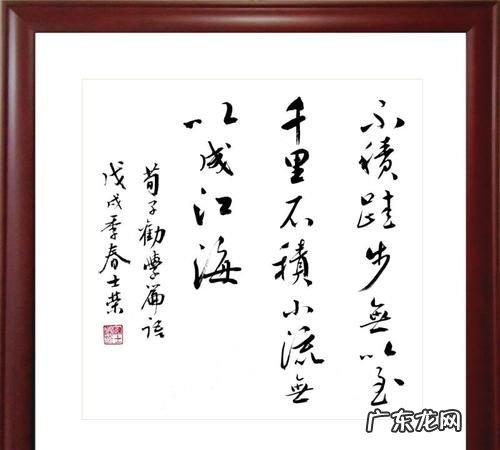 不積跬步無以至
千里不積小流無
以成江海
荀子勸學篇語
戊戌季春士榮
广东龙网